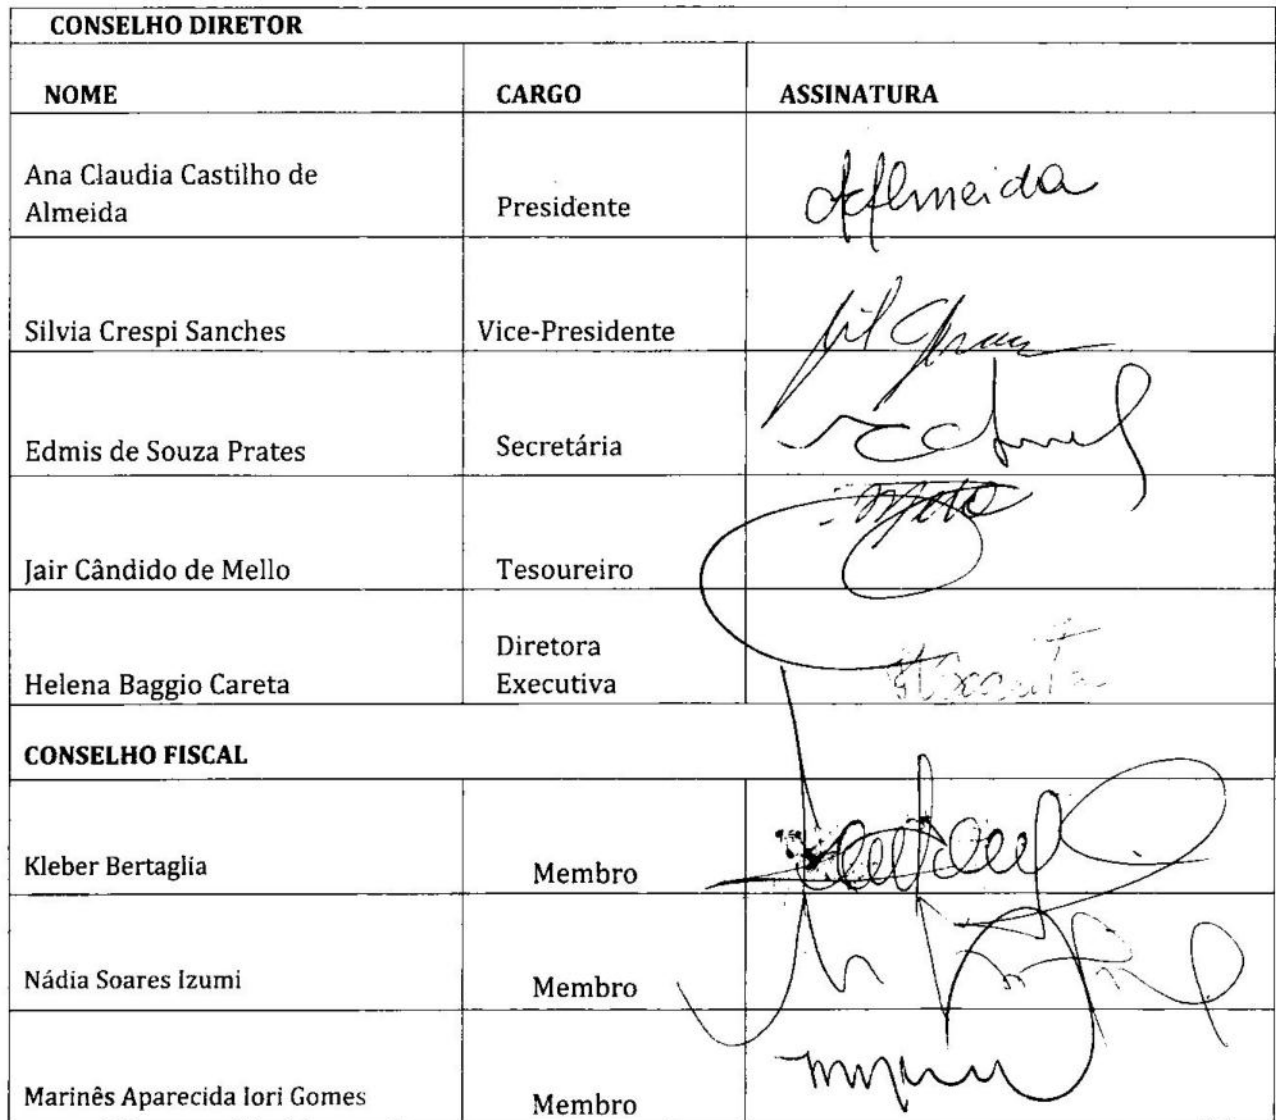 CONSELHO DIRETOR
NOME CARGO ASSINATURA
Ana Claudia Castilho de
Almeida Presidente Almeida
Silvia Crespi Sanches Vice-Presidente
Edmis de Souza Prates Secretária
Jair Cândido de Mello Tesoureiro
Diretora
Helena Baggio Careta Executiva
CONSELHO FISCAL
Kleber Bertaglia Membro
Nádia Soares Izumi Membro
Marinês Aparecida Iori Gomes Membro